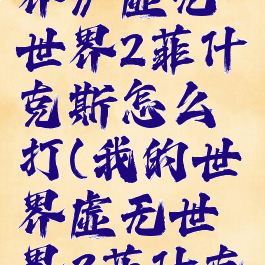 界)/虚无
世界2菲什
克斯怎么
打(我的世
界虚无世
界2菲什克